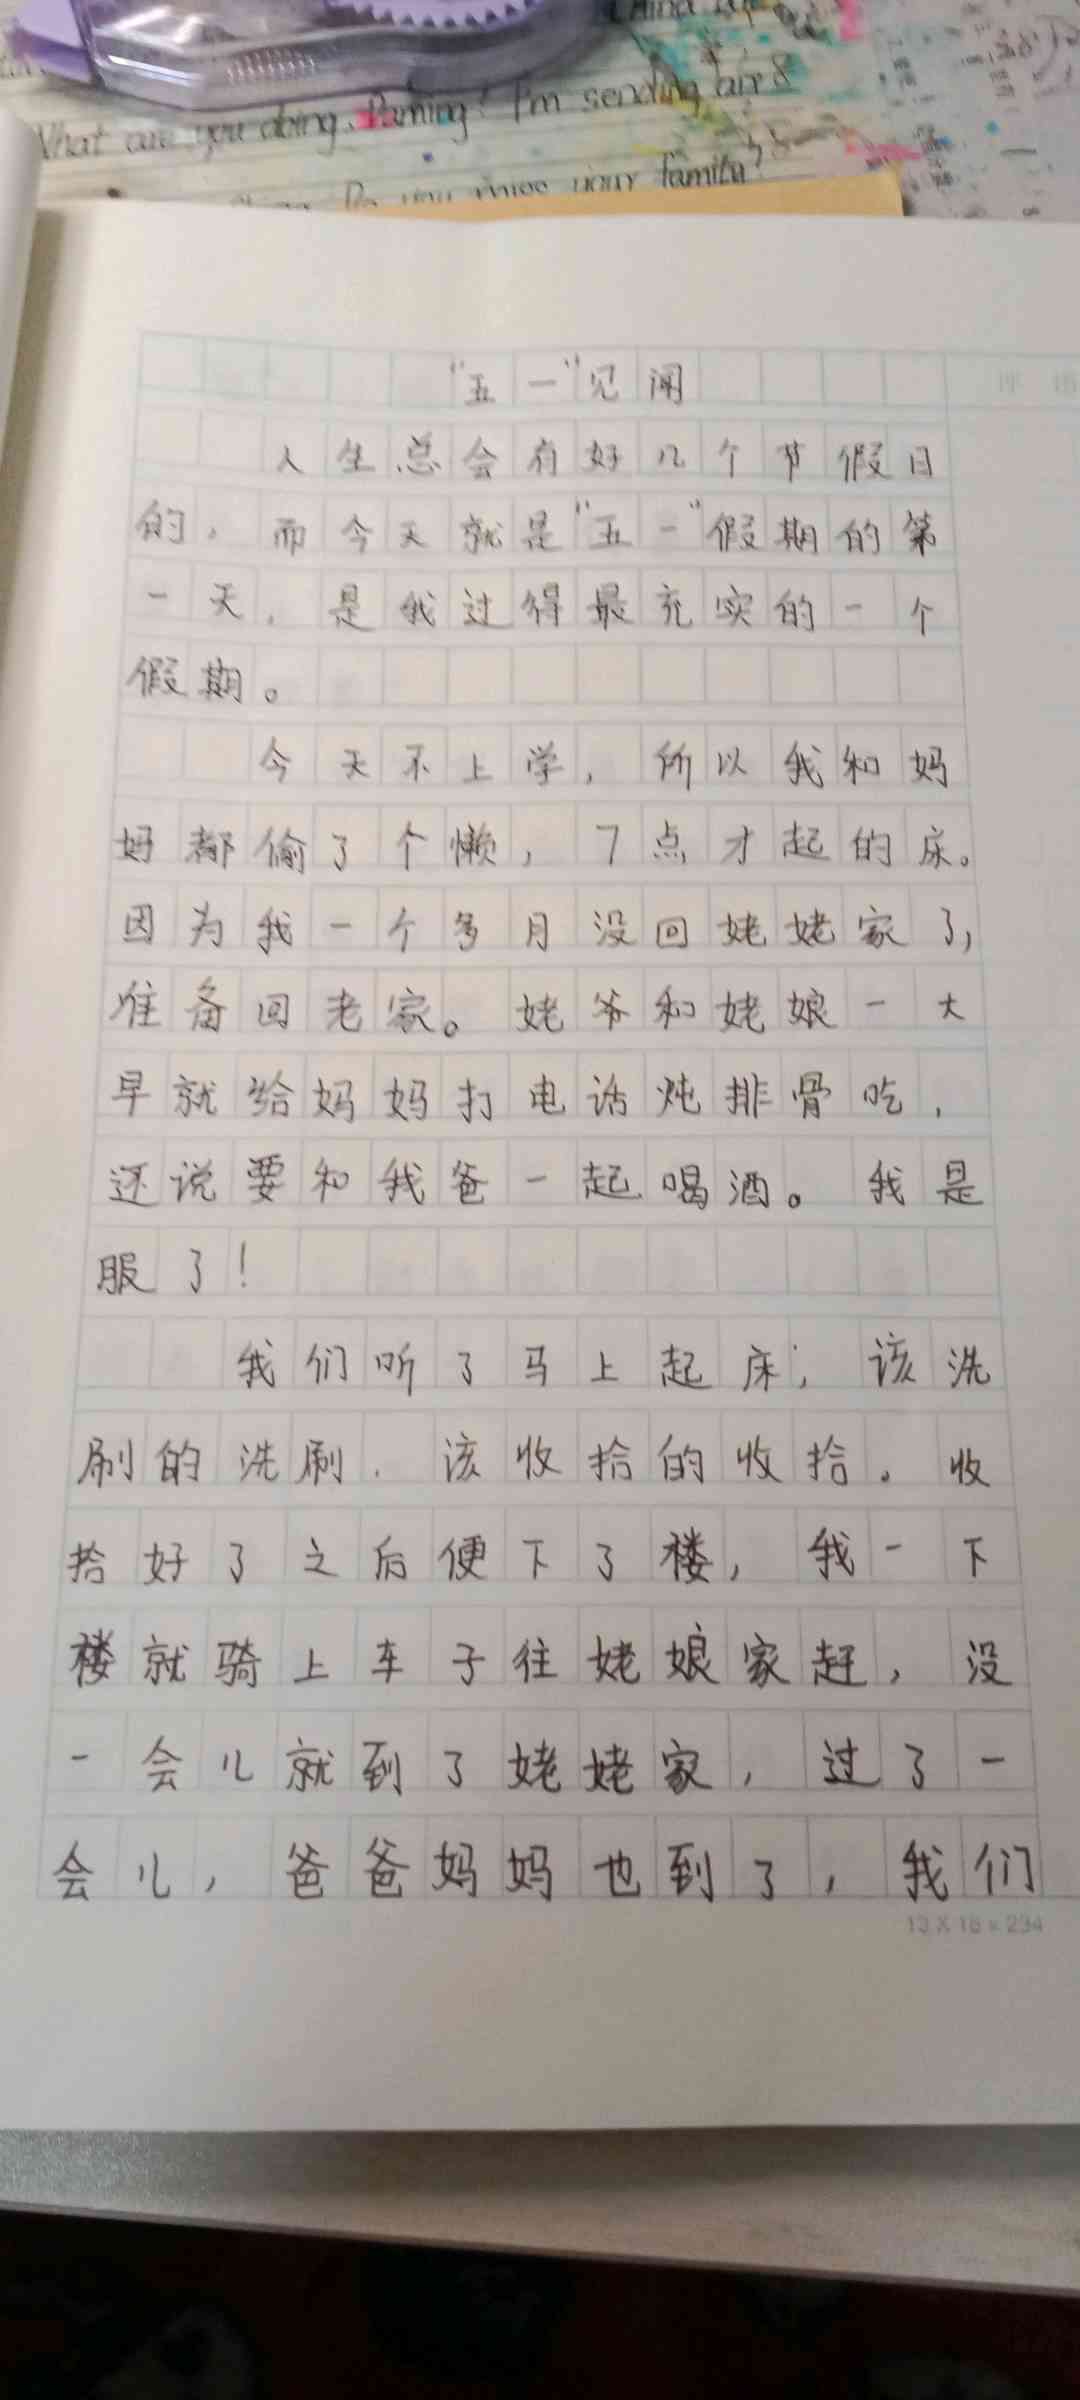 What are you doing, Daming? I'm sending air
Do you miss your family?
"五一"见闻
人生总会有好几个节假日
的,而今天就是"五一"假期的第
一天,是我过得最充实的一个
假期。
今天不上学,所以我和妈
妈都偷了个懒,7点才起的床。
因为我一个多月没回姥姥家了,
准备回老家。姥爷和姥娘一大
早就给妈妈打电话炖排骨吃,
还说要和我爸一起喝酒。我是
服了!
我们听了马上起床,该洗
刷的洗刷.该收拾的收拾。收
拾好了之后便下了楼,我一下
楼就骑上车子往姥娘家赶,没
一会儿就到了姥姥家,过了一
会儿,爸爸妈妈也到了,我们
13×18=234